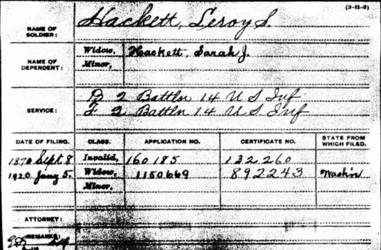 (3-11-3)
NAME OF SOLDIER: Hackett, Leroy S.
NAME OF DEPENDENT: Widow, Hackett, Sarah J.
Minor,
SERVICE: B 2 Battln 14 U S Inf
F 2 Battln 14 U S Inf
DATE OF FILING. CLASS. APPLICATION NO. CERTIFICATE NO. STATE FROM WHICH FILED.
1870 Sept 8 Invalid, 160185 132260
1920 Jany 5. Widow, 1150669 892243 Wash'n
Minor,
ATTORNEY:
REMARKS: